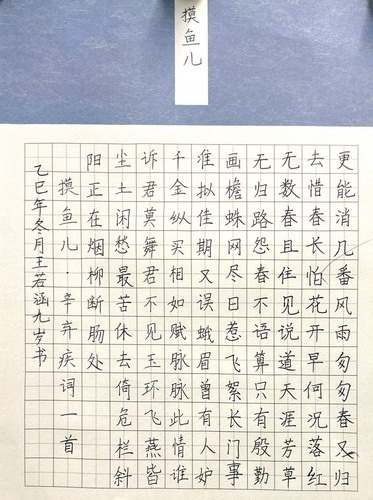 摸鱼儿
更能消几番风雨匆匆春又归
去惜春长怕花开早何况落红
无数春且住见说道天涯芳草
无归路怨春不语算只有殷勤
画檐蛛网尽日惹飞絮长门事
准拟佳期又误蛾眉曾有人妒
千金纵买相如赋脉脉此情谁
诉君莫舞君不见玉环飞燕皆
尘土闲愁最苦休去倚危栏斜
阳正在烟柳断肠处
摸鱼儿·辛弃疾词一首
乙巳年冬月王若涵九岁书